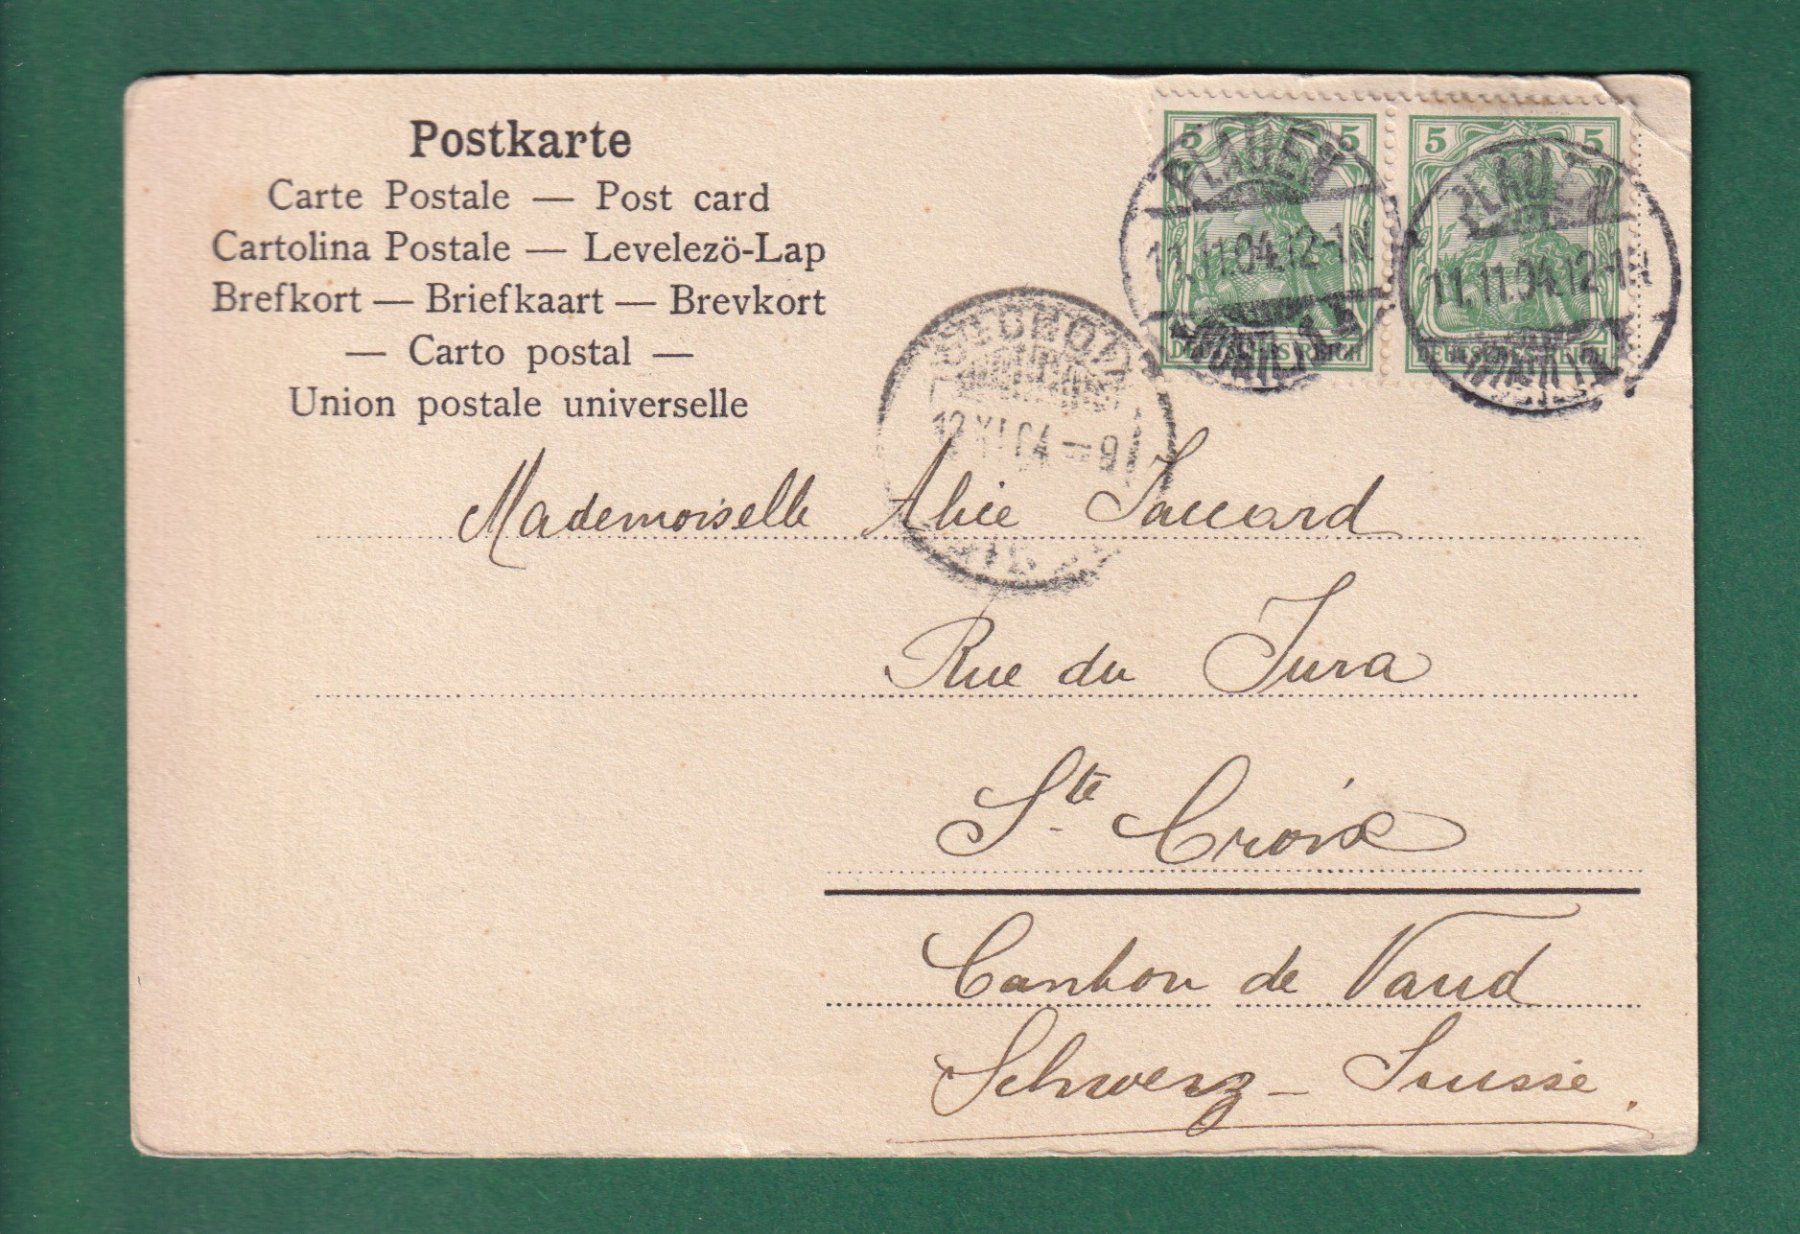 Postkarte
Carte Postale — Post card
Cartolina Postale — Levelezö-Lap
Brefkort — Briefkaart — Brevkort
— Carto postal —
Union postale universelle
5 5
5 5
PLAUEN
11.11.04.12-1N
PLAUEN
11.11.04.12-1N
DEUTSCHES REICH
DEUTSCHES REICH
12 XI 04 — 9
Mademoiselle Alice Jaccard
Rue du Jura
Ste Croix
Canton de Vaud
Schweiz – Suisse.